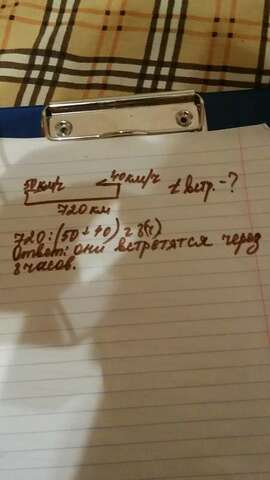 50км/ч 40км/ч t встр. -?
720 км
720:(50+40)=8(ч)
Ответ: они встретятся через
8 часов.